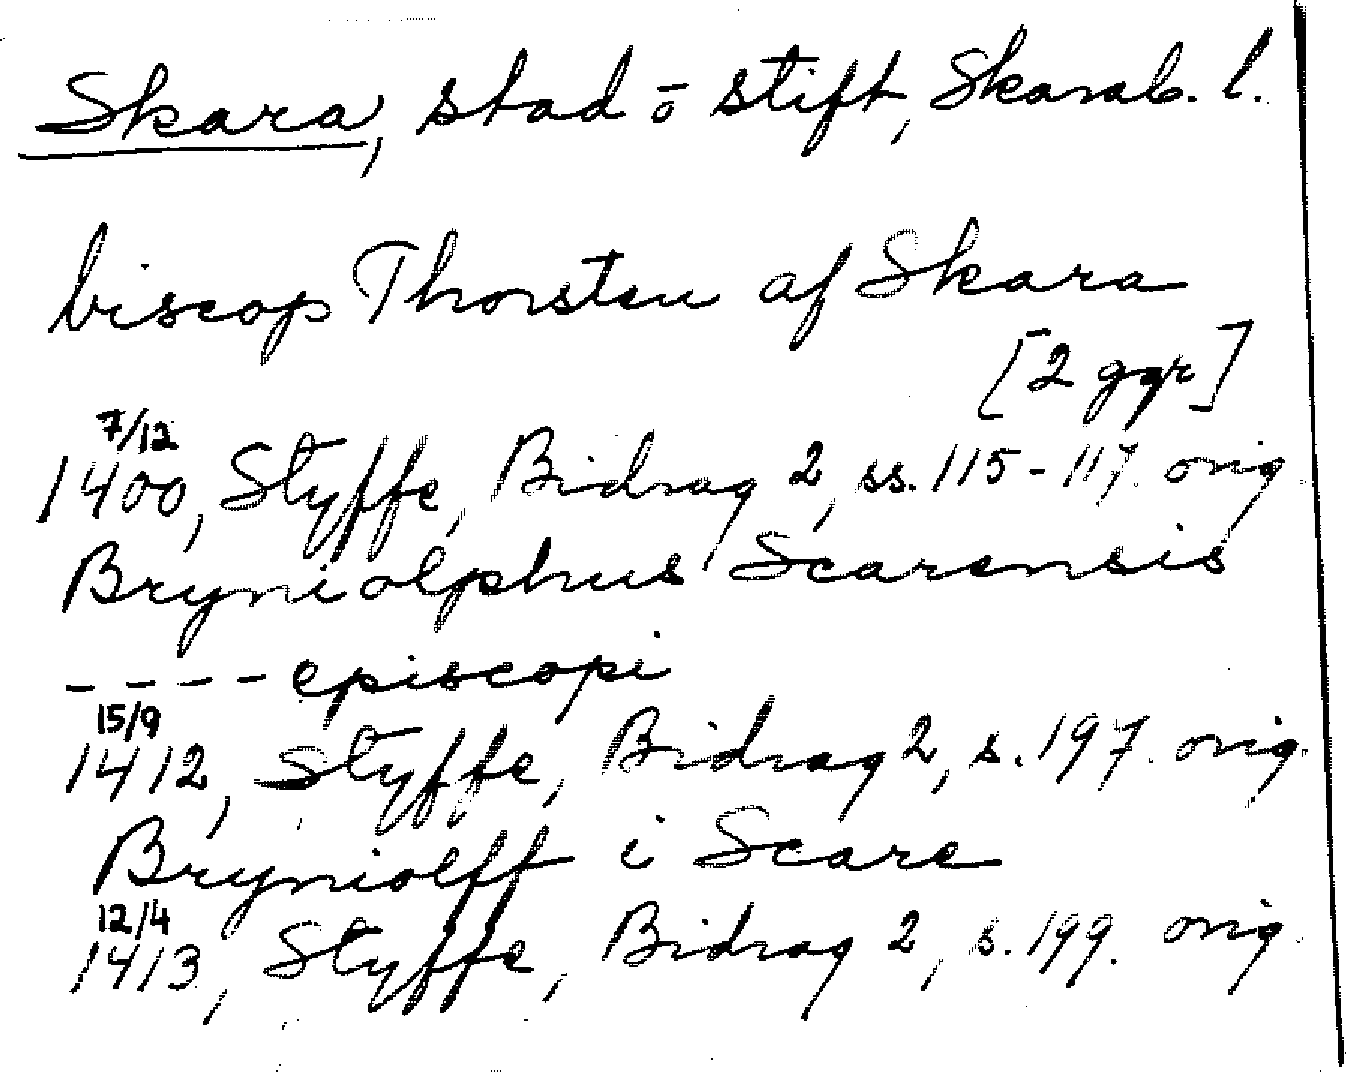 Skara, stad o stift, Skarab. l.
biscop Thorsten af Skara
[2 ggr]
7/12
1400, Styffe, Bidrag 2, ss. 115-117. orig
Bryniolphus Scarensis
---- episcopi
15/9
1412, Styffe, Bidrag 2, s. 197. orig.
Bryniolff i Scare
12/4
1413, Styffe, Bidrag 2, s. 199. orig.